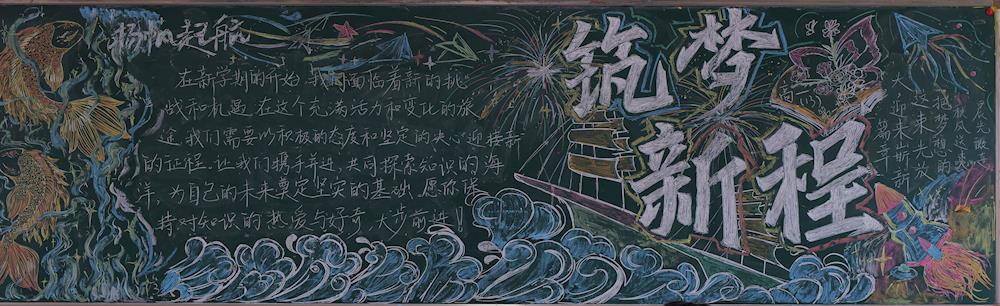 扬帆起航
在新学期的开始,我们面临着新的挑
战和机遇,在这个充满活力和变化的旅
途,我们需要以积极的态度和坚定的决心迎接新
的征程,让我们携手并进,共同探索知识的海
洋,为自己的未来奠定坚实的基础,愿你保
持对知识的热爱与好奇 大步前进!!
筑梦
新程
把梦想的
这束光放
大迎来崭新
篇章